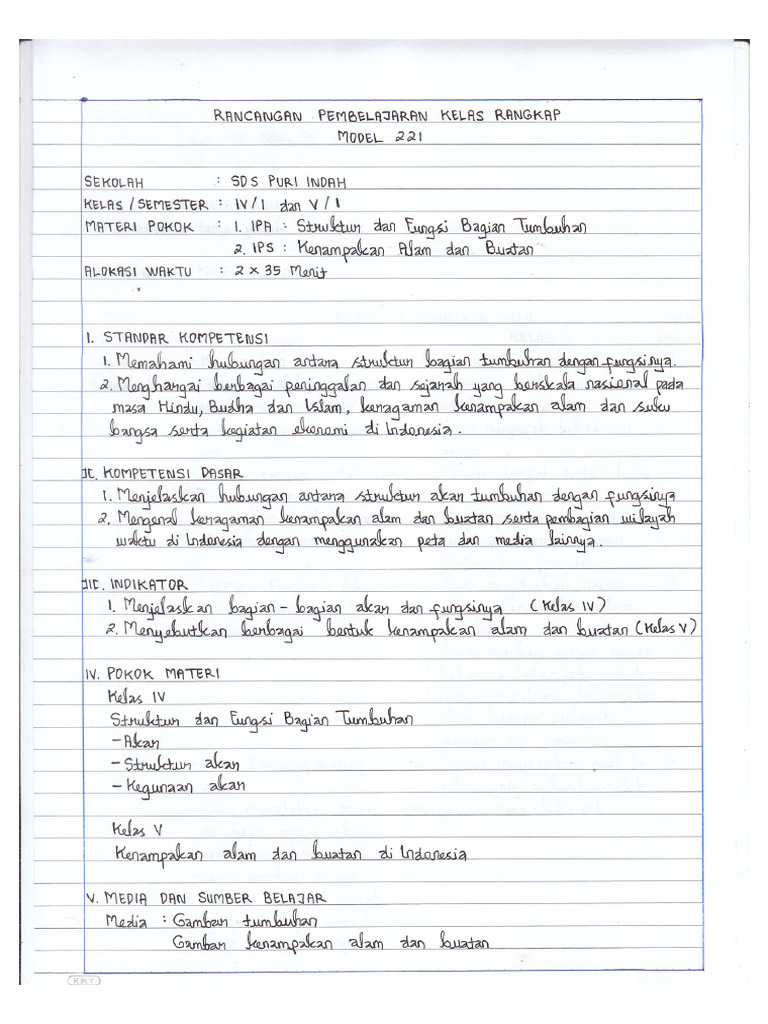 RANCANGAN PEMBELAJARAN KELAS RANGKAP
MODEL 221
SEKOLAH : SDS PURI INDAH
KELAS / SEMESTER : IV / 1 dan V / 1
MATERI POKOK : 1. IPA : Struktur dan Fungsi Bagian Tumbuhan
2. IPS : Kenampakan Alam dan Buatan
ALOKASI WAKTU : 2 x 35 Menit
I. STANDAR KOMPETENSI
1. Memahami hubungan antara struktur bagian tumbuhan dengan fungsinya.
2. Menghargai berbagai peninggalan dan sejarah yang berskala nasional pada
masa Hindu, Budha dan Islam, keragaman kenampakan alam dan suku
bangsa serta kegiatan ekonomi di Indonesia.
II. KOMPETENSI DASAR
1. Menjelaskan hubungan antara struktur akar tumbuhan dengan fungsinya
2. Mengenal keragaman kenampakan alam dan buatan serta pembagian wilayah
waktu di Indonesia dengan menggunakan peta dan media lainnya.
III. INDIKATOR
1. Menjelaskan bagian - bagian akar dan fungsinya (Kelas IV)
2. Menyebutkan berbagai bentuk kenampakan alam dan buatan (Kelas V)
IV. POKOK MATERI
Kelas IV
Struktur dan Fungsi Bagian Tumbuhan
- Akar
- Struktur akar
- Kegunaan akar
Kelas V
Kenampakan alam dan buatan di Indonesia
V. MEDIA DAN SUMBER BELAJAR
Media : Gambar tumbuhan
Gambar kenampakan alam dan buatan
KKY